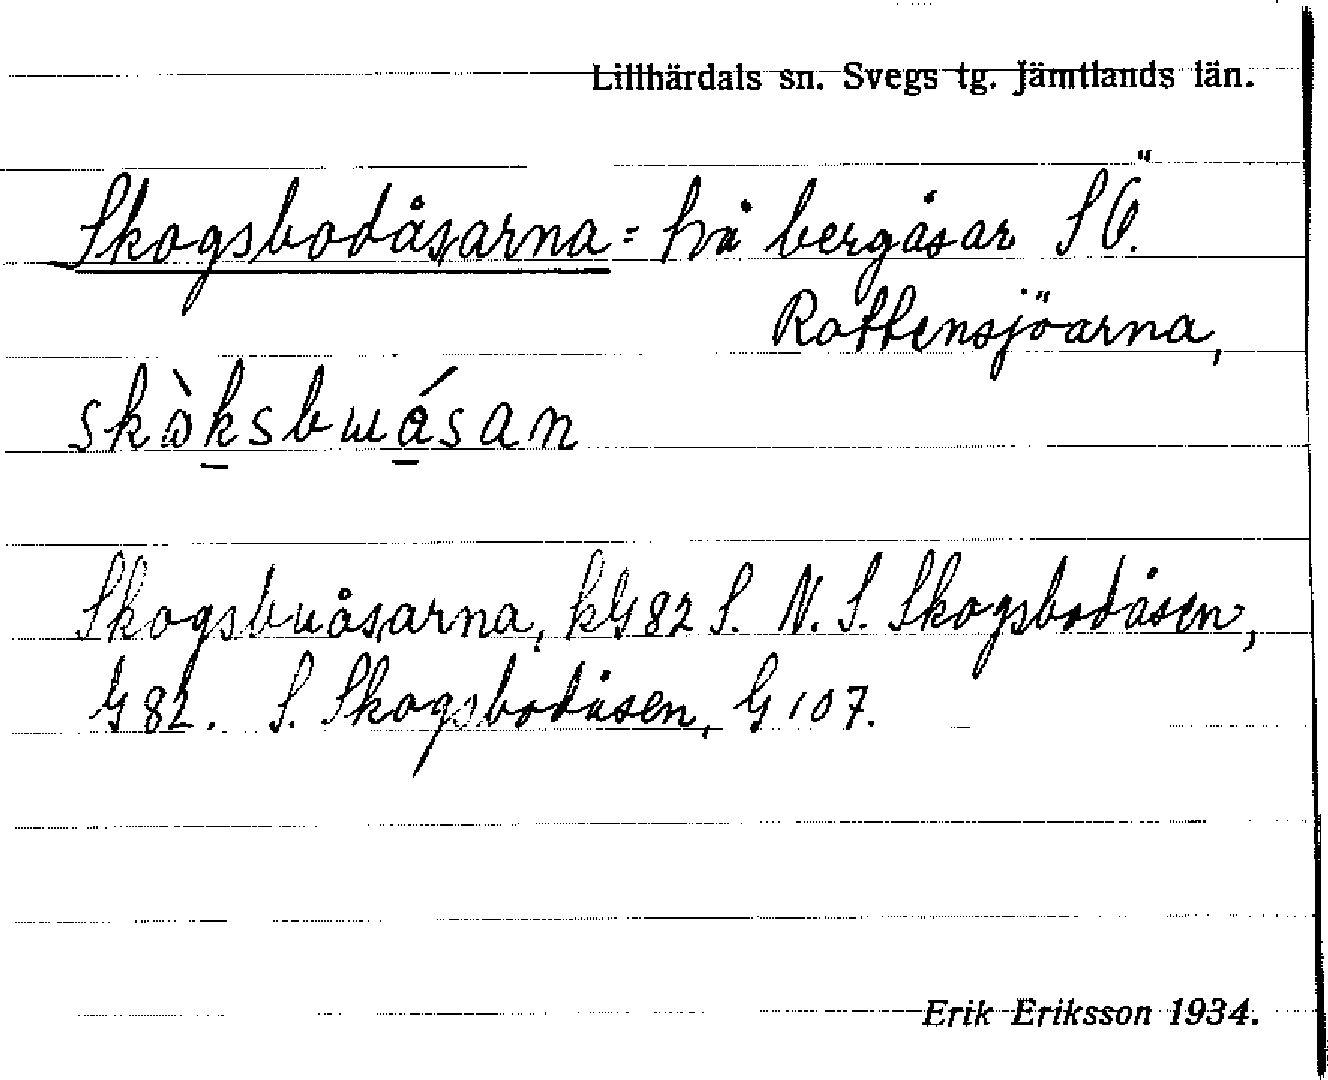 Lillhärdals sn. Svegs tg. Jämtlands län.
Skogsbodåsarna = två bergåsar SÖ.
Rottensjöarna,
Skogsbuåsarna, kG82 S. N. S. Skogsbodåsen,
G 82. S. Skogsbodåsen, G 107.
Erik Eriksson 1934.